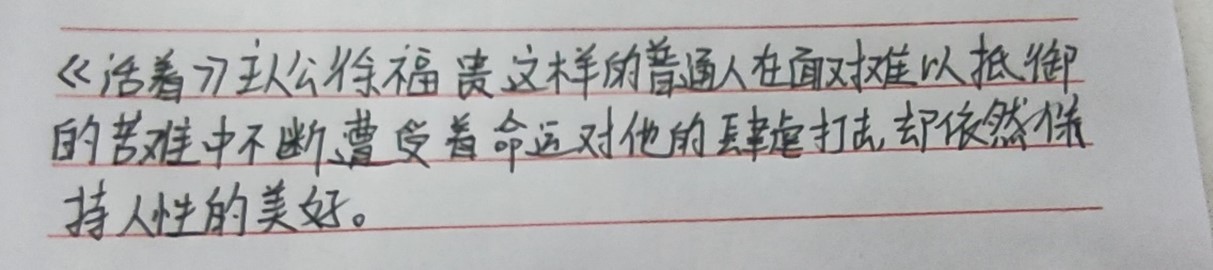 《活着》主人公徐福贵这样的普通人在面对难以抵御
的苦难中不断遭受着命运对他的肆虐打击,却依然保
持人性的美好。